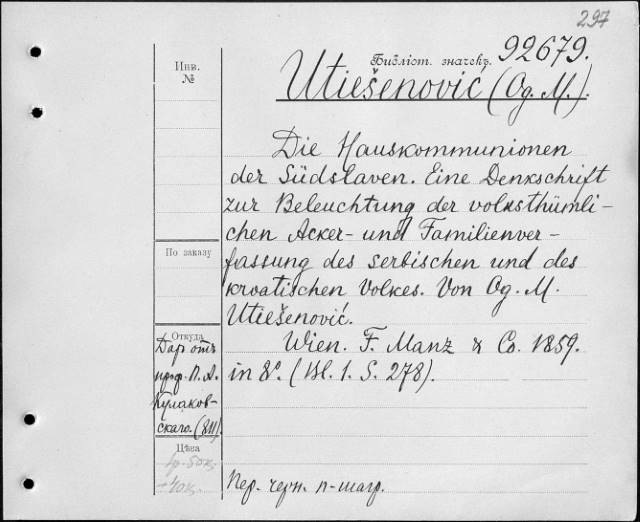 297
Библіот. значекъ 92679.
Инв.
№
Utiešenović (Og. M.).
Die Hauskommunionen
der Südslaven. Eine Denkschrift
zur Beleuchtung der volksthümli-
chen Acker- und Familienver-
fassung des serbischen und des
kroatischen Volkes. Von Og. M.
Utiešenović.
Wien. F. Manz & Co. 1859.
in 8°. (Bl. 1. S. 278).
По заказу
Откуда
Даръ отъ
проф. П. А.
Кулаков-
скаго. (811).
Цѣна
1р. 50к.
40к.
Пер. черн. п-шагр.